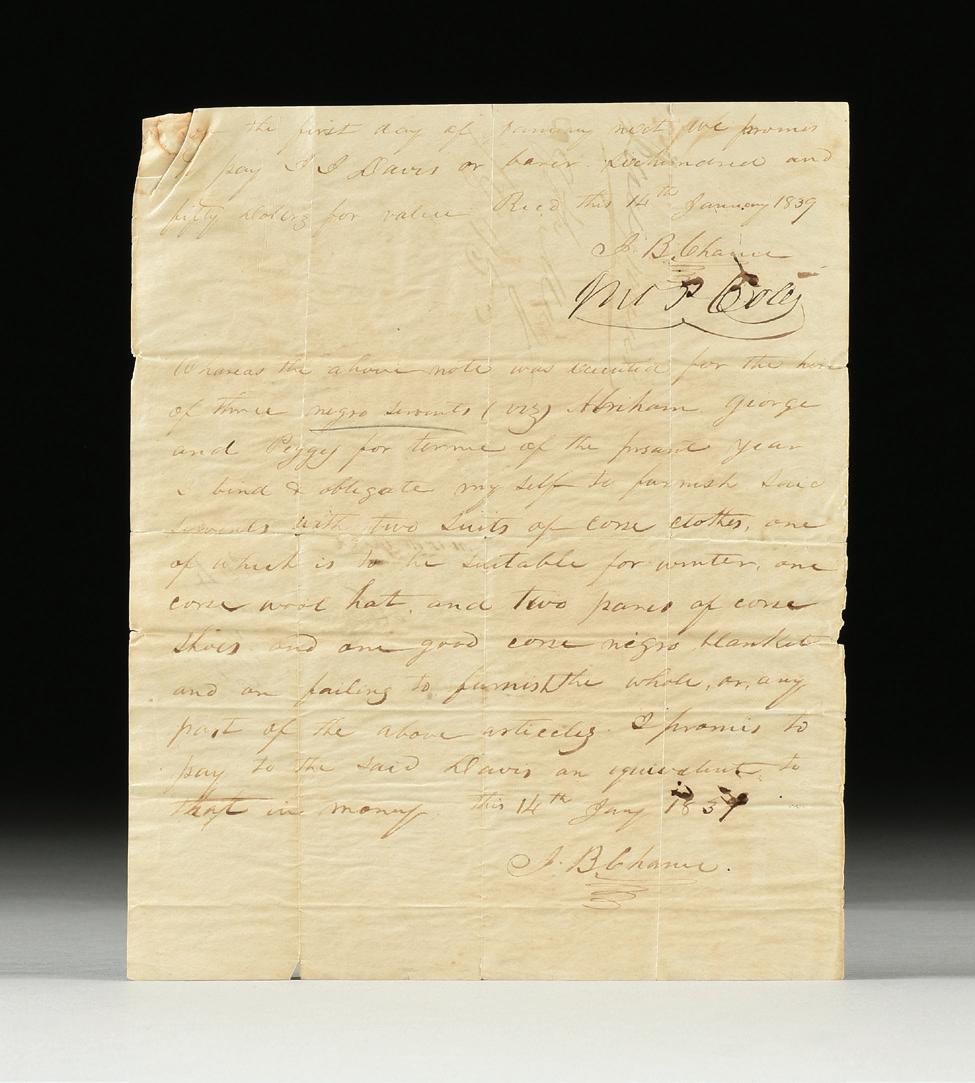 the first day of January next we promis
pay I I Davis or barer Sixhundred and
fifty dolers for value Recd this 14th January 1839
J. B. Chance
Jno P Coles
Whareas the above note was executed for the hire
of three negro servents (viz) Abriham George
and Peggy for terme of the prsant year
I bind & obligate my self to furnish said
servents with two suits of corse clothes, one
of which is to be suitable for winter, one
corse wool hat, and two pares of corse
shoes and one good corse negro blanket
and on failing to furnish the whole, or, any
part of the above articcles. I promis to
pay to the said Davis an equivalent to
that in money this 14th Jany 1839
J. B. Chance.